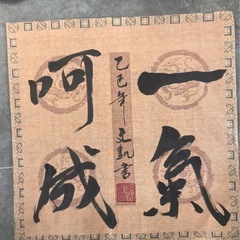 一氣
呵成
乙巳年文凱書